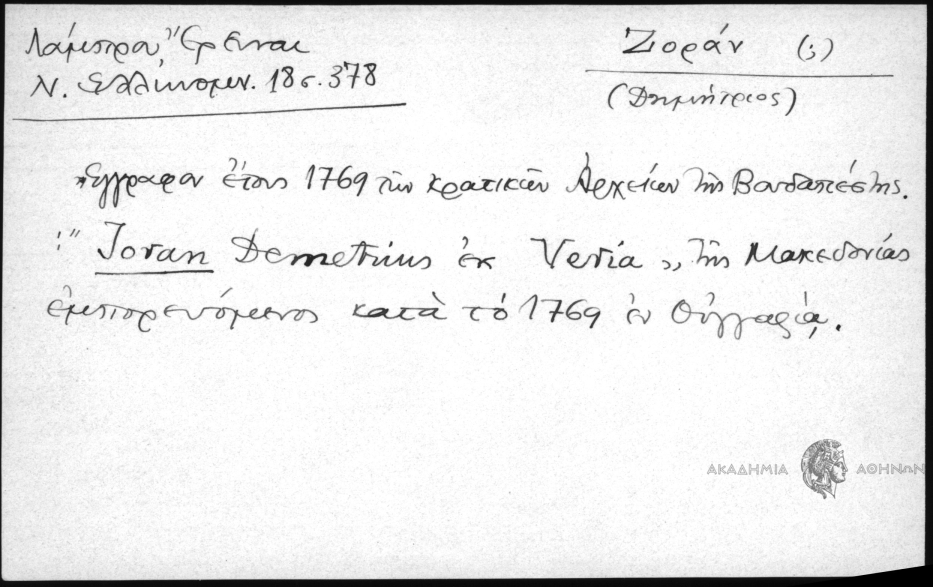 Λάμπρου, Ἔρευναι
Ν. Ἑλληνομν. 18 σ. 378
Ζοράν (;)
(Δημήτριος)
Ἔγγραφον ἔτους 1769 τῶν κρατικῶν Ἀρχείων τῆς Βουδαπέστης.
:" Joran Demetrius ἐκ Veria „ τῆς Μακεδονίας
ἐμπορευόμενος κατὰ τὸ 1769 ἐν Οὑγγαρίᾳ.
ΑΚΑΔΗΜΙΑ ΑΘΗΝΩΝ